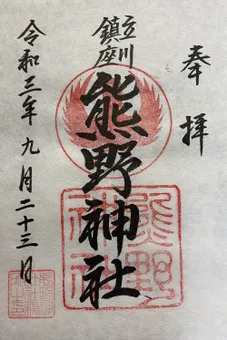 奉拝
立川
鎮座
熊野神社
令和三年九月二十三日
熊野
神社